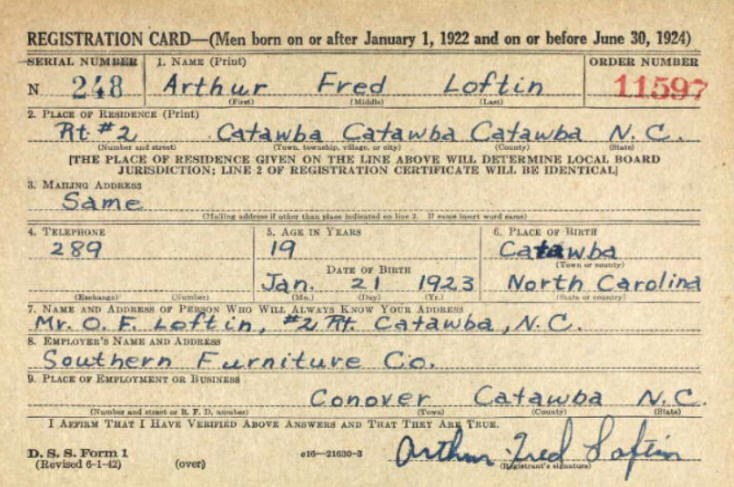 REGISTRATION CARD—(Men born on or after January 1, 1922 and on or before June 30, 1924)
SERIAL NUMBER 1. NAME (Print) ORDER NUMBER
N 248 Arthur Fred Loftin 11597
(First) (Middle) (Last)
2. PLACE OF RESIDENCE (Print)
Rt. #2 Catawba Catawba Catawba N.C.
(Number and street) (Town, township, village, or city) (County) (State)
[THE PLACE OF RESIDENCE GIVEN ON THE LINE ABOVE WILL DETERMINE LOCAL BOARD
JURISDICTION; LINE 2 OF REGISTRATION CERTIFICATE WILL BE IDENTICAL]
3. MAILING ADDRESS
Same
(Mailing address if other than place indicated on line 2. If same insert word same)
4. TELEPHONE 5. AGE IN YEARS 6. PLACE OF BIRTH
289 19 Catawba
(Town or county)
DATE OF BIRTH
Jan. 21 1923 North Carolina
(Exchange) (Number) (Mo.) (Day) (Yr.) (State or country)
7. NAME AND ADDRESS OF PERSON WHO WILL ALWAYS KNOW YOUR ADDRESS
Mr. O. F. Loftin, #2 Rt. Catawba, N.C.
8. EMPLOYER'S NAME AND ADDRESS
Southern Furniture Co.
9. PLACE OF EMPLOYMENT OR BUSINESS
Conover Catawba N.C.
(Number and street or R. F. D. number) (Town) (County) (State)
I AFFIRM THAT I HAVE VERIFIED ABOVE ANSWERS AND THAT THEY ARE TRUE.
D. S. S. Form 1
(Revised 6-1-42) (over) e16—21630-3 Arthur Fred Loftin
(Registrant's signature)